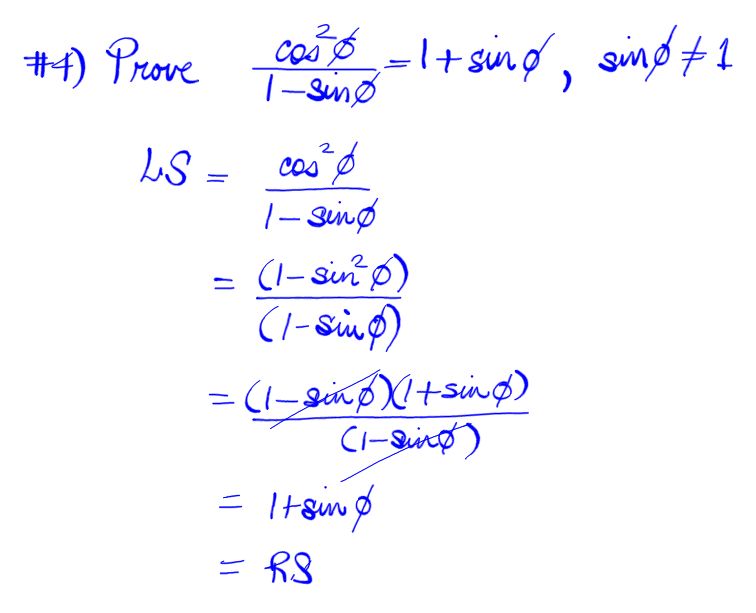 #4) Prove cos²φ / 1 - sinφ = 1 + sinφ, sinφ ≠ 1
LS = cos²φ / 1 - sinφ
= (1 - sin²φ) / (1 - sinφ)
= (1 - sinφ)(1 + sinφ) / (1 - sinφ)
= 1 + sinφ
= RS